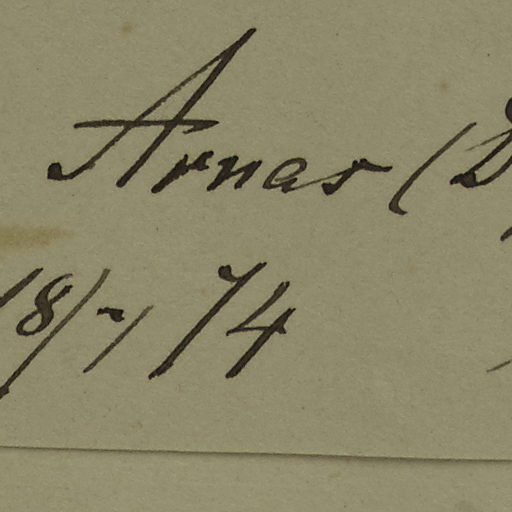 Arnas (D
18/7 74